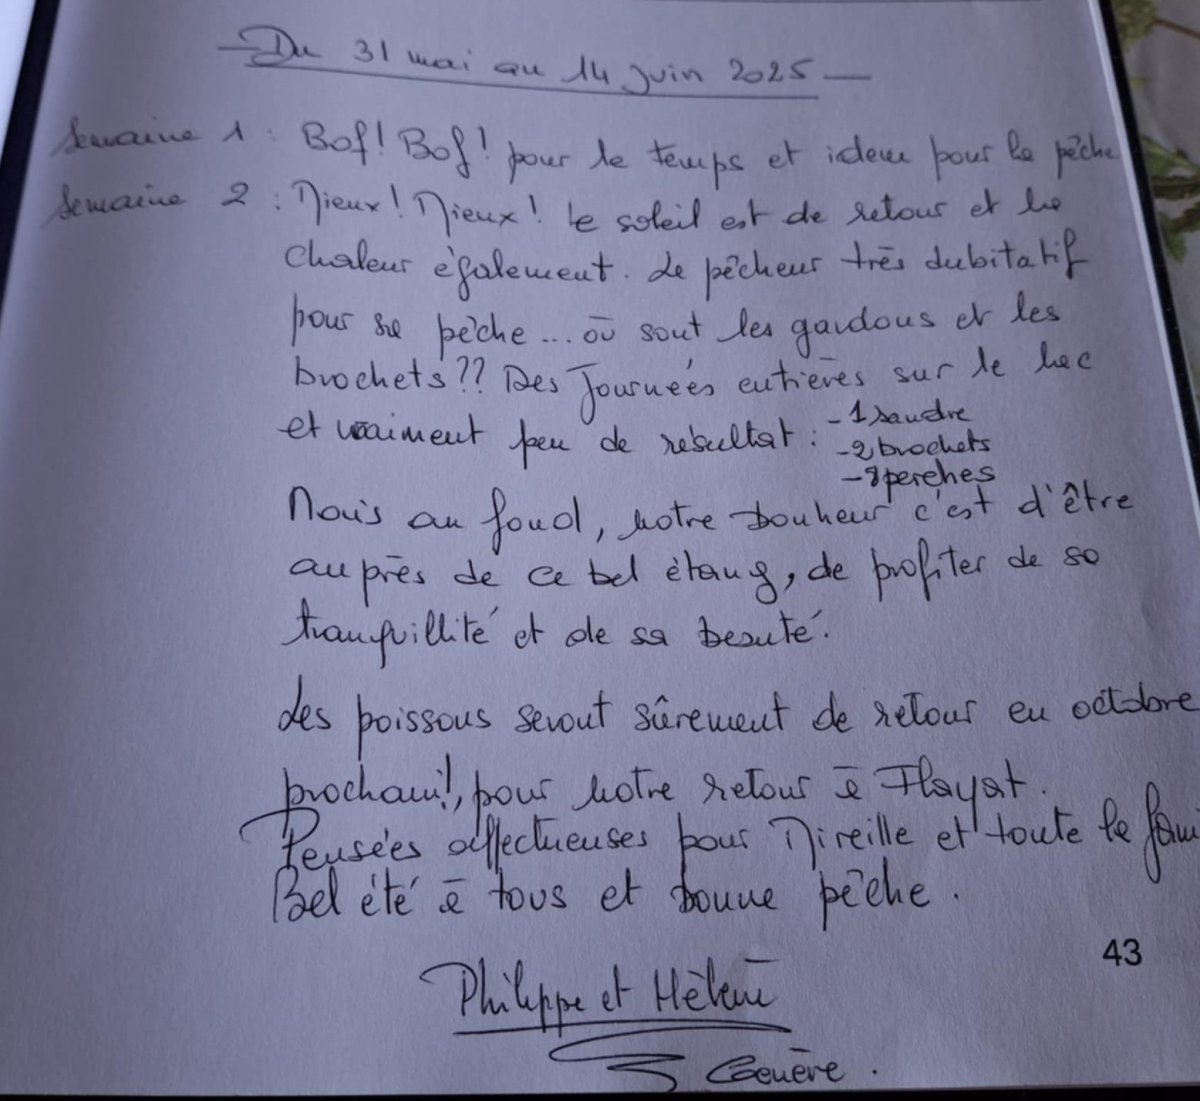 — Du 31 mai au 14 juin 2025 —
Semaine 1 : Bof! Bof! pour le temps et idem pour la pêche
Semaine 2 : Mieux! Mieux! Le soleil est de retour et la
chaleur également. Le pêcheur très dubitatif
pour sa pêche... où sont les gardons et les
brochets?? Des Journées entières sur le lac
et vraiment peu de resultat : - 1 sandre
- 2 brochets
- 8 perches
Mais au fond, notre bonheur c'est d'être
auprès de ce bel étang, de profiter de sa
tranquillité et de sa beauté.
Les poissons seront sûrement de retour en octobre
prochain!, pour notre retour à Flayat.
Pensées affectueuses pour Mireille et toute la fam
Bel été à tous et bonne pêche.
43
Philippe et Hélène
Genève.